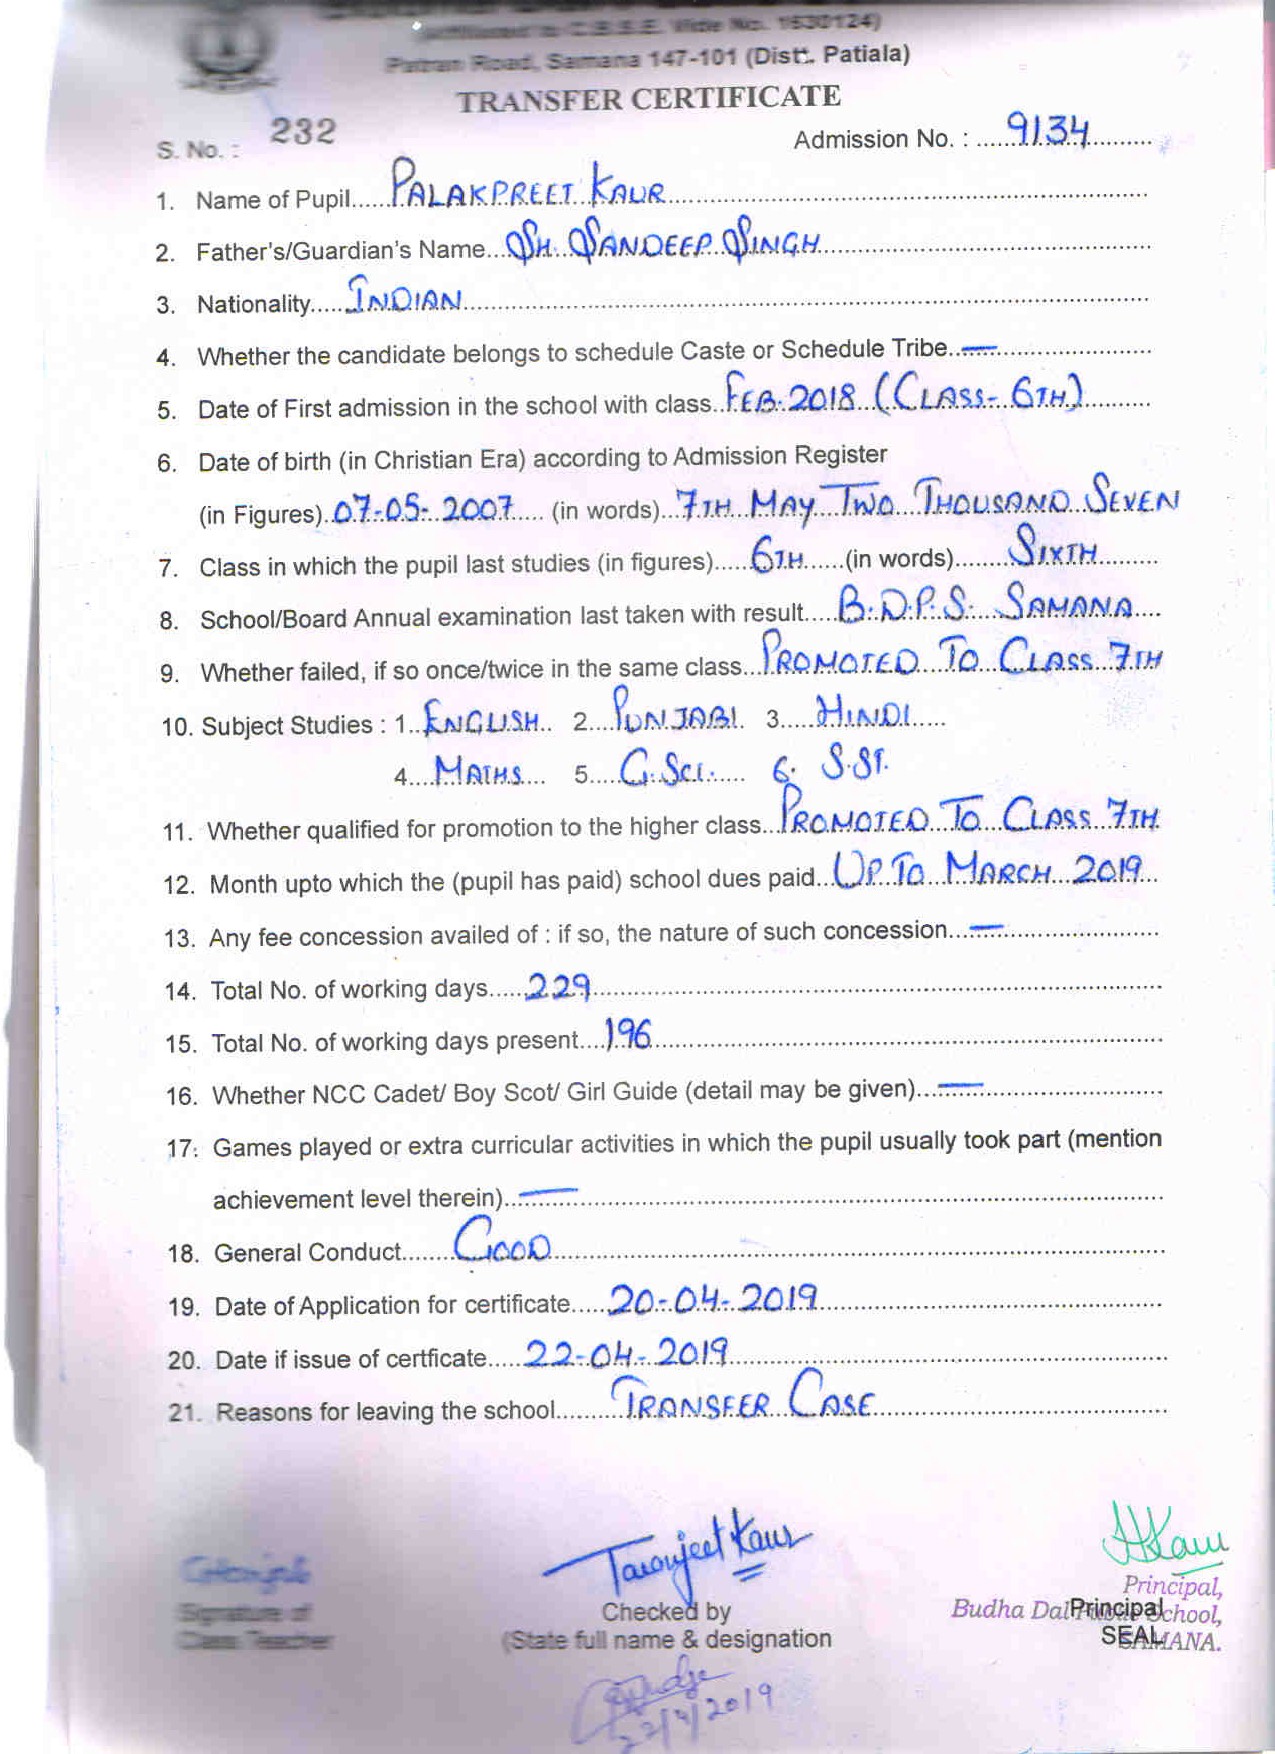 (Affiliated to C.B.S.E. Vide No. 1630124)
Patran Road, Samana 147-101 (Distt. Patiala)
TRANSFER CERTIFICATE
S. No. : 232 Admission No. : 9134
1. Name of Pupil PALAKPREET KAUR
2. Father's/Guardian's Name SH. SANDEEP SINGH
3. Nationality INDIAN
4. Whether the candidate belongs to schedule Caste or Schedule Tribe —
5. Date of First admission in the school with class FEB. 2018 (CLASS- 6TH)
6. Date of birth (in Christian Era) according to Admission Register
(in Figures) 07-05-2007 (in words) 7TH MAY TWO THOUSAND SEVEN
7. Class in which the pupil last studies (in figures) 6TH (in words) SIXTH
8. School/Board Annual examination last taken with result B.D.P.S. SAMANA
9. Whether failed, if so once/twice in the same class PROMOTED TO CLASS 7TH
10. Subject Studies : 1. ENGLISH 2. PUNJABI 3. HINDI
4. MATHS 5. G.SCI. 6. S.ST.
11. Whether qualified for promotion to the higher class PROMOTED TO CLASS 7TH
12. Month upto which the (pupil has paid) school dues paid UP TO MARCH 2019
13. Any fee concession availed of : if so, the nature of such concession —
14. Total No. of working days 229
15. Total No. of working days present 196
16. Whether NCC Cadet/ Boy Scot/ Girl Guide (detail may be given) —
17. Games played or extra curricular activities in which the pupil usually took part (mention
achievement level therein) —
18. General Conduct GOOD
19. Date of Application for certificate 20-04-2019
20. Date if issue of certficate 22-04-2019
21. Reasons for leaving the school TRANSFER CASE
Taranjeet Kaur
Signature of
Class Teacher
Checked by
(State full name & designation
Principal,
Budha Dal School,
SAMANA.
Principal
SEAL
22/4/2019